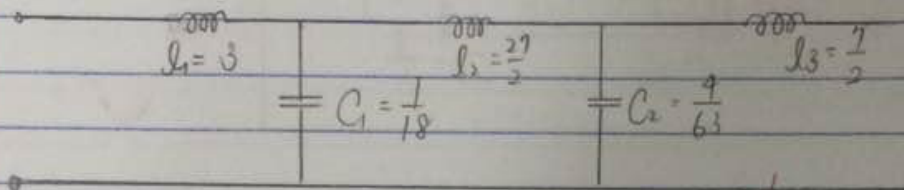 l₁ = 3
l₂ = 27/2
l₃ = 7/2
C₁ = 1/18
C₂ = 4/63